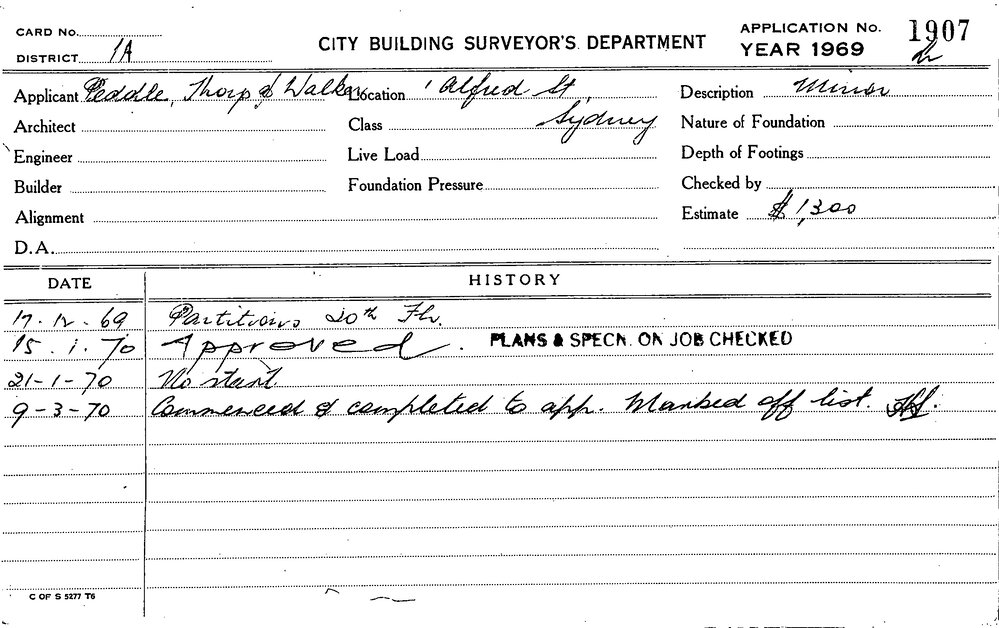 CARD No.
DISTRICT 1A
CITY BUILDING SURVEYOR'S DEPARTMENT
APPLICATION No. 1907
YEAR 1969
Applicant Peddle, Thorp & Walker Location Alfred St, Description Minor
Architect Class Sydney Nature of Foundation
Engineer Live Load Depth of Footings
Builder Foundation Pressure Checked by
Alignment Estimate $1,300
D.A.
DATE HISTORY
17.12.69 Partitions 20th Flr.
15.1.70 Approved. PLANS & SPECN. ON JOB CHECKED
21-1-70 No start
9-3-70 Commenced & completed to app. Marked off list.
C OF S 5277 T6